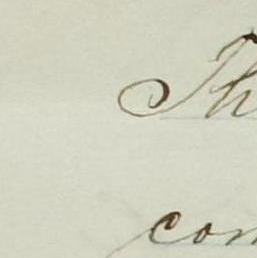 Th
con